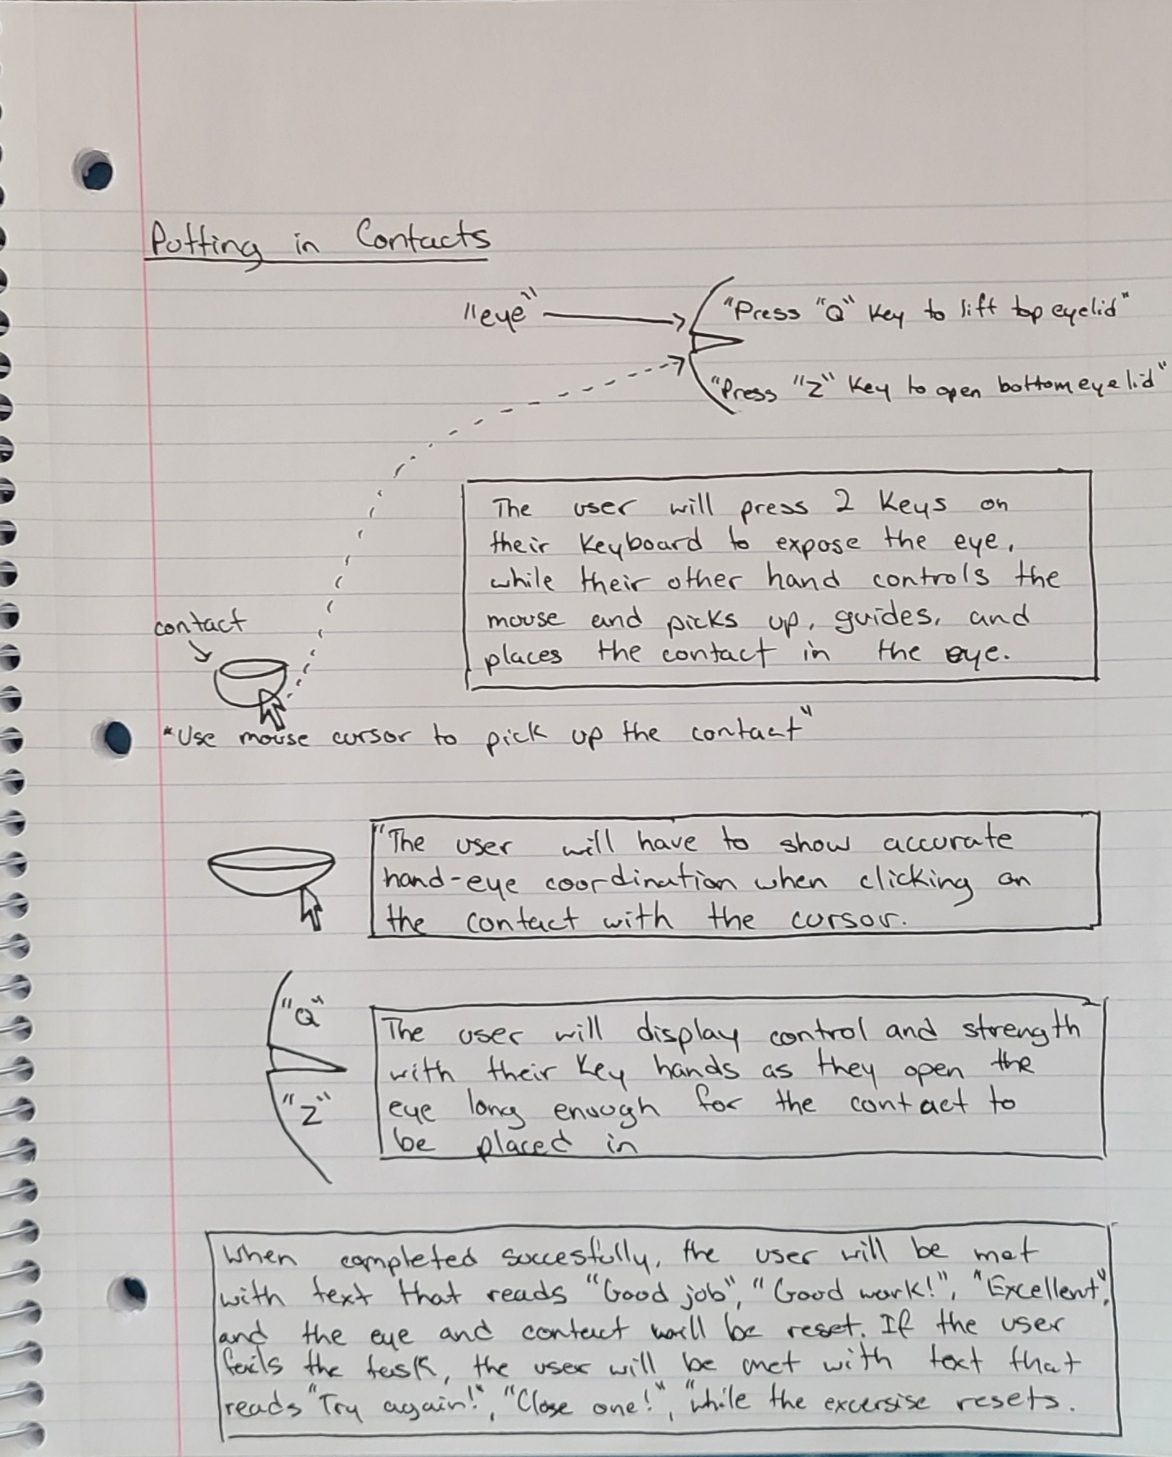 Putting in Contacts
"eye"
"Press "Q" Key to lift top eyelid"
"Press "Z" Key to open bottom eyelid"
The user will press 2 Keys on
their Keyboard to expose the eye,
while their other hand controls the
mouse and picks up, guides, and
places the contact in the eye.
contact
"Use mouse cursor to pick up the contact"
"The user will have to show accurate
hand-eye coordination when clicking on
the contact with the cursor.
"Q"
"Z"
The user will display control and strength
with their Key hands as they open the
eye long enough for the contact to
be placed in
When completed succesfully, the user will be met
with text that reads "Good job", "Good work!", "Excellent",
and the eye and contact will be reset. If the user
fails the task, the user will be met with text that
reads "Try again!", "Close one!", "while the excersise resets.